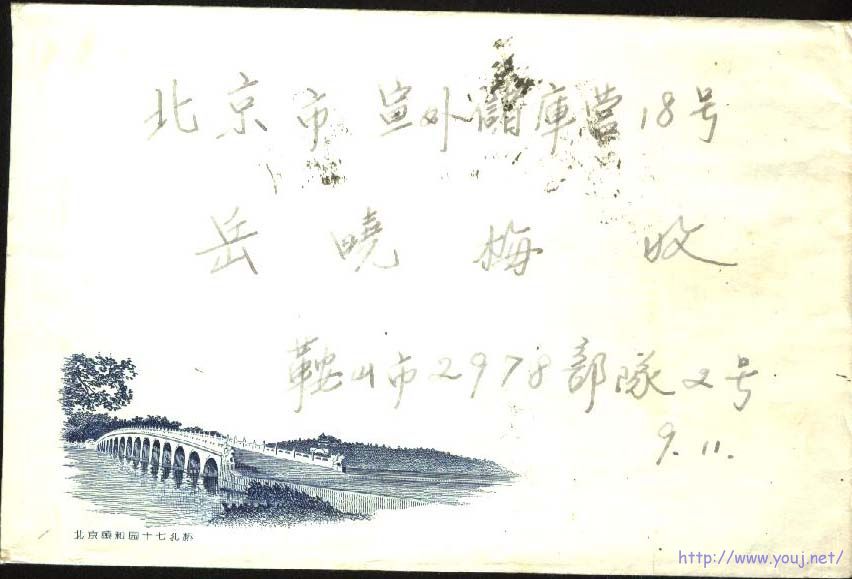 北京市 宣外儲庫营18号
岳曉梅 收
鞍山市2978部隊又号
9.11.
北京颐和园十七孔桥
http://www.youj.net/